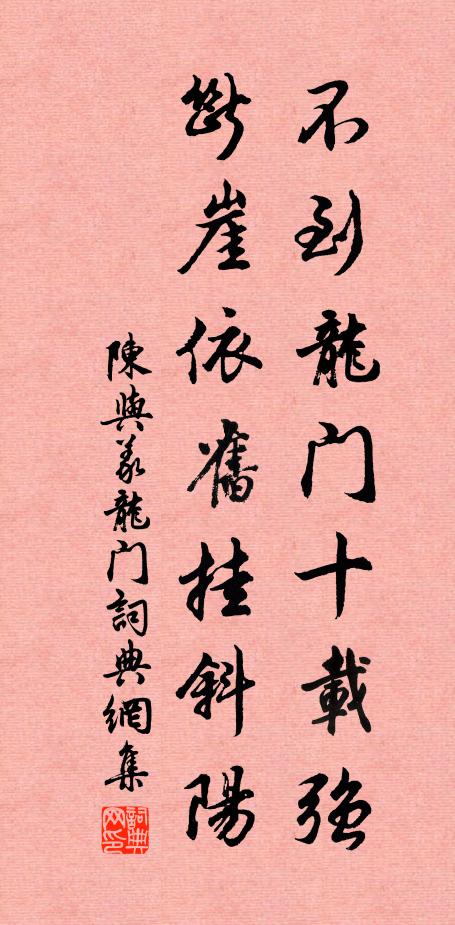 不到龍门十載強
斷崖依舊挂斜陽
陳與義龍门詞典網集
詞典网印